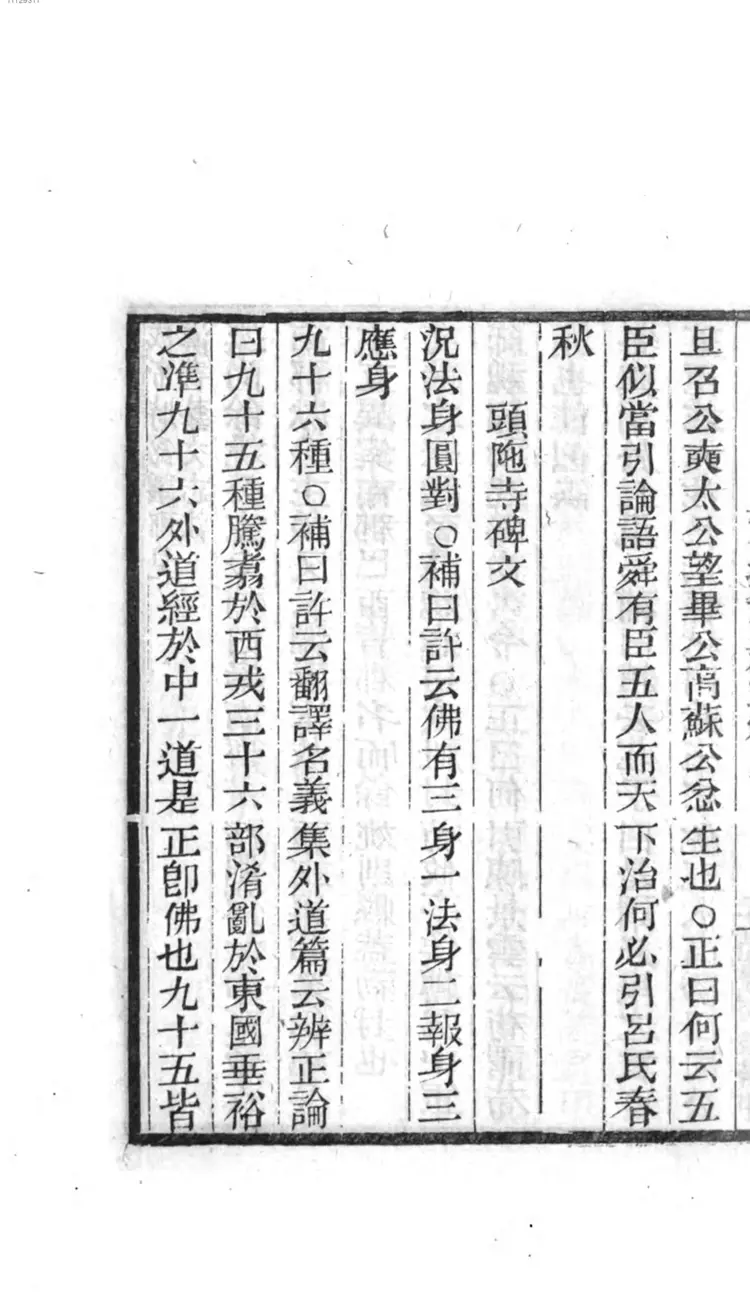 11129311
旦召公奭太公望畢公高蘇公忿生也○正曰何云五
臣似當引論語舜有臣五人而天下治何必引呂氏春
秋
頭陁寺碑文
況法身圓對○補曰許云佛有三身一法身二報身三
應身
九十六種○補曰許云翻譯名義集外道篇云辨正論
曰九十五種騰翥於西戎三十六部淆亂於東國垂裕
之準九十六外道經於中一道是正卽佛也九十五皆